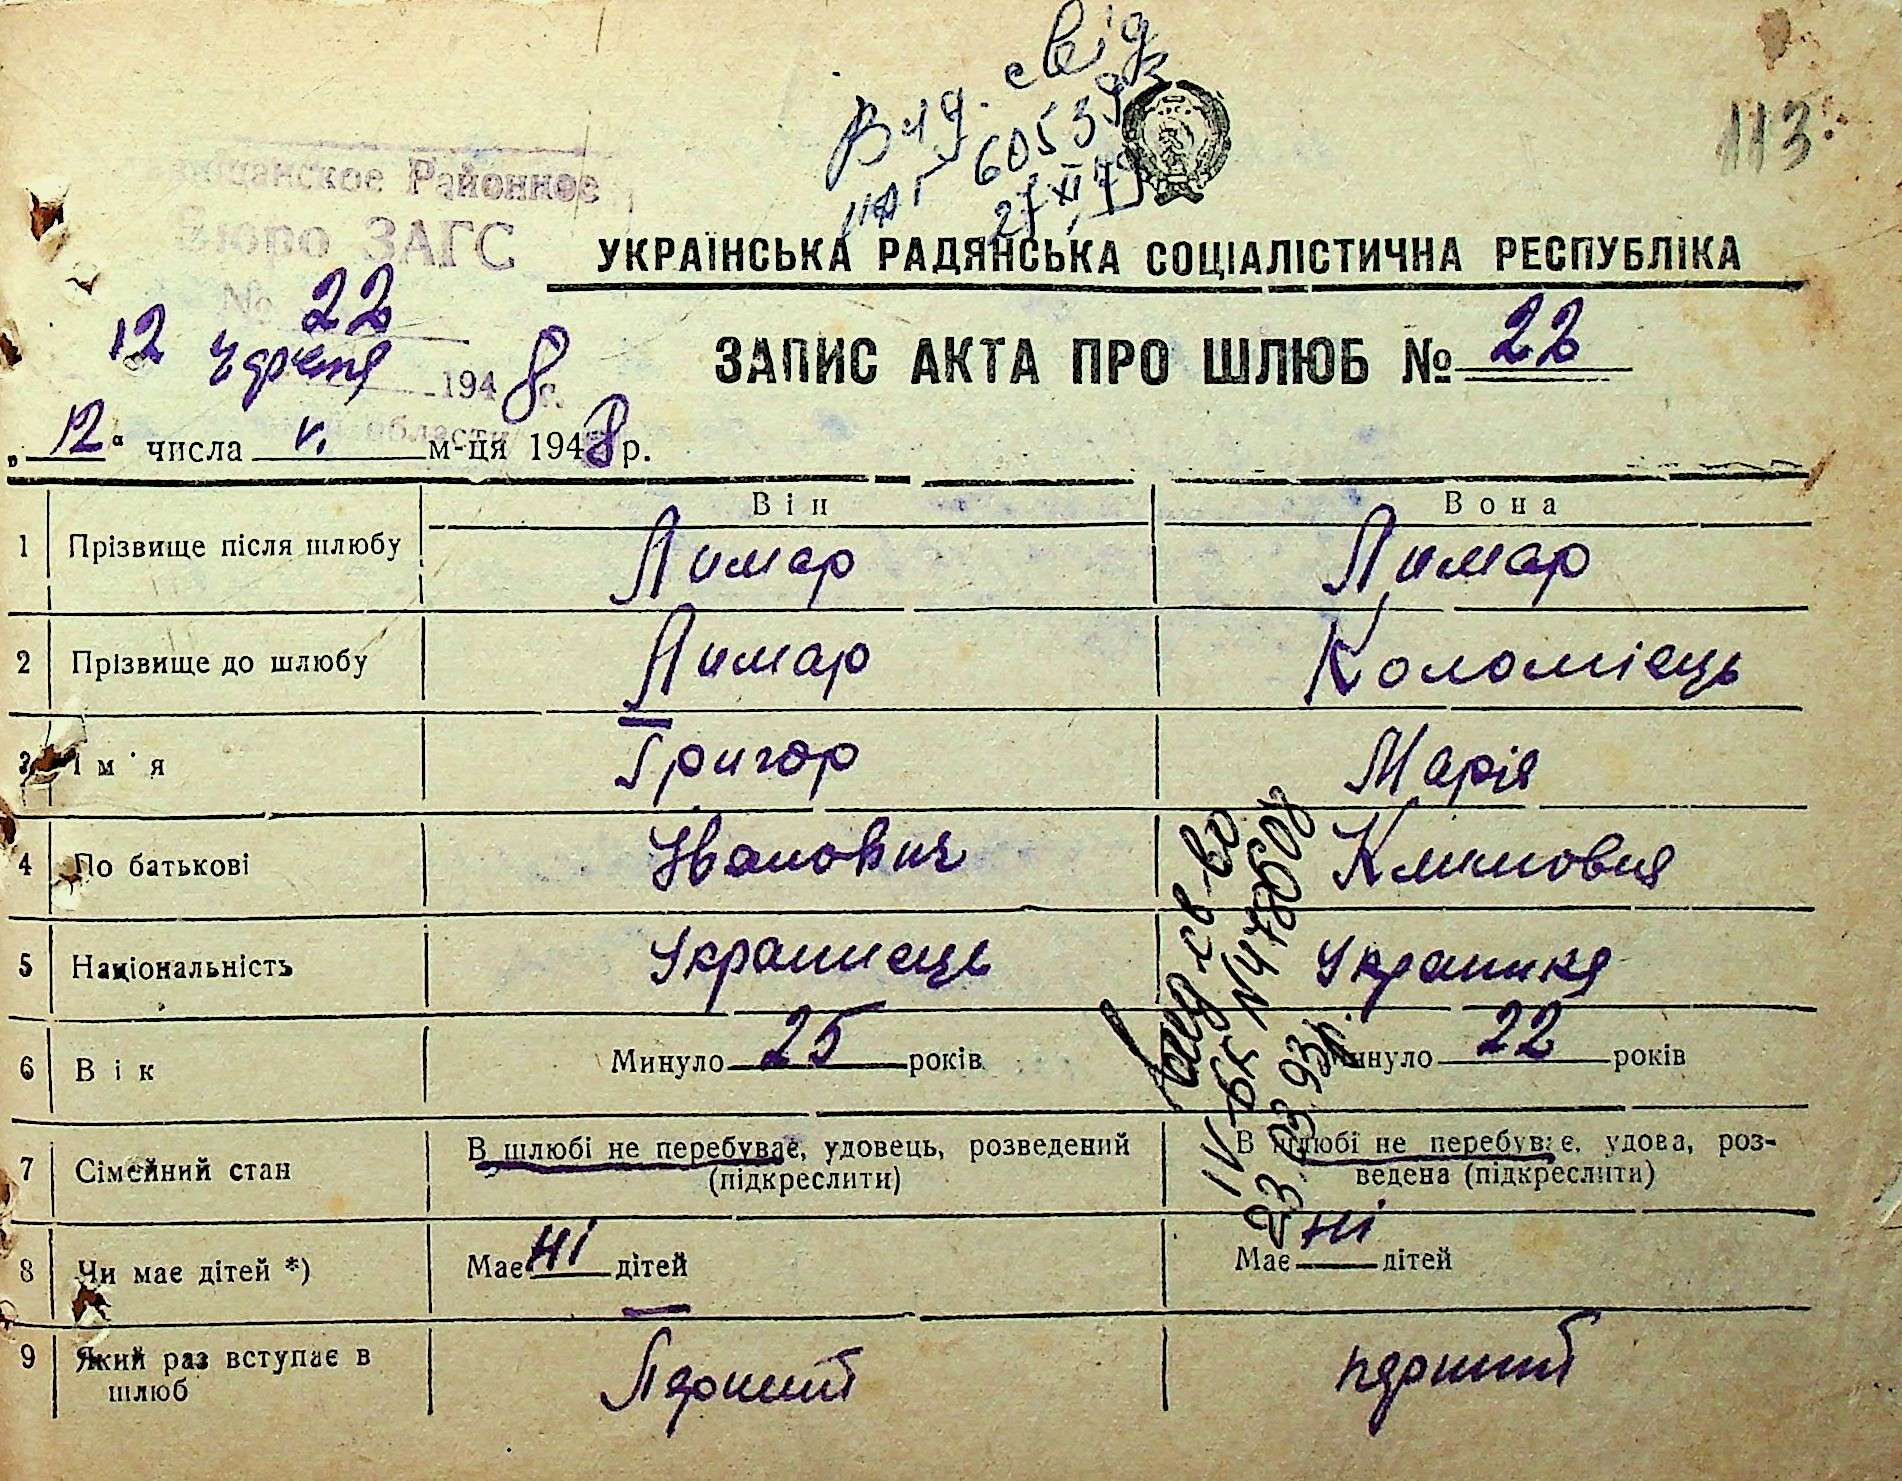 Вид. свід
113.
Районное
Бюро ЗАГС
УКРАЇНСЬКА РАДЯНСЬКА СОЦІАЛІСТИЧНА РЕСПУБЛІКА
№ 22
12 червня 1948 г.
ЗАПИС АКТА ПРО ШЛЮБ № 22
„12“ числа м-ця 1948 р.
Він Вона
1 Прізвище після шлюбу Лимар Лимар
2 Прізвище до шлюбу Лимар Коломієць
3 Ім'я Григор Марія
4 По батькові Іванович Климовня
5 Національність Українець Українка
6 Вік Минуло 25 років Минуло 22 років
7 Сімейний стан В шлюбі не перебуває, удовець, розведений (підкреслити) В шлюбі не перебуває, удова, роз-
ведена (підкреслити)
8 Чи має дітей *) Має ні дітей Має ні дітей
9 Який раз вступає в
шлюб Перший перший